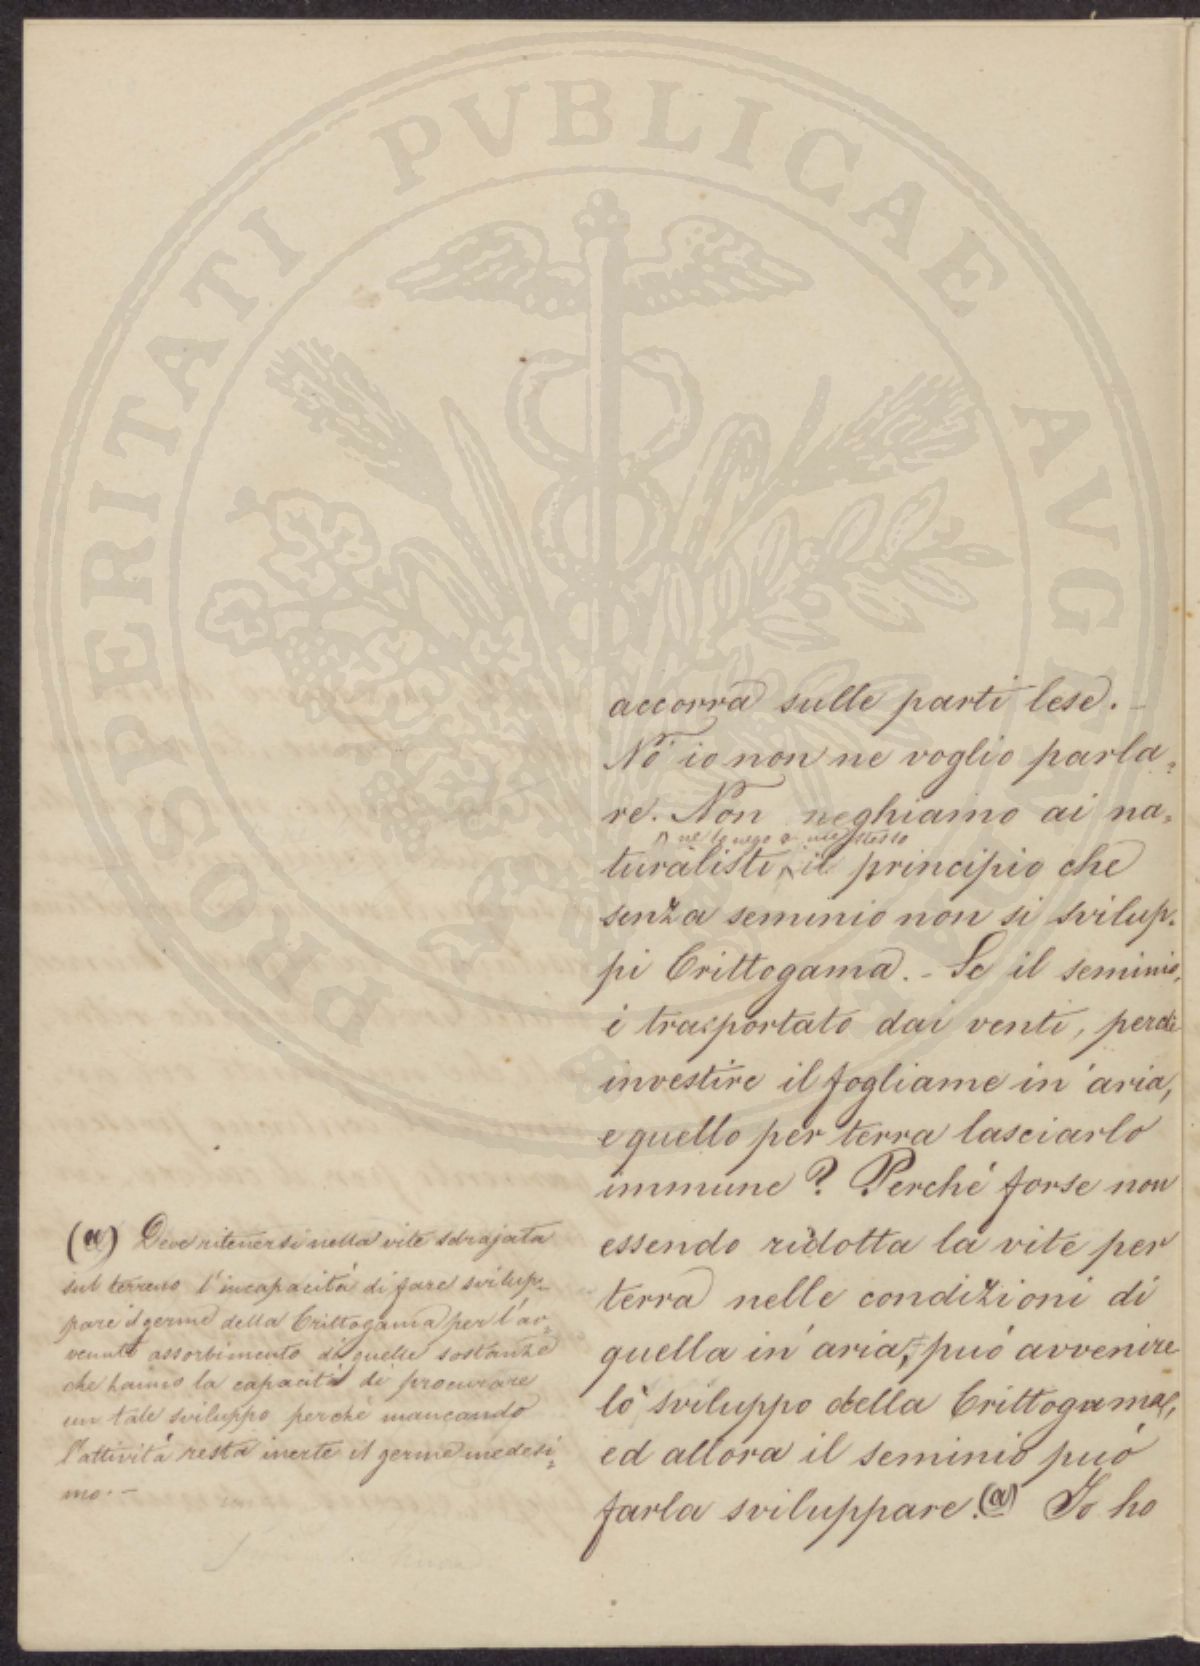 PROSPERITATI PVBLICAE AVGENDAE
accorra sulle parti lese. –
Nò io non ne voglio parla=
re. Non neghiamo ai na=
ne lo nego a me stesso
turalisti, il principio che
senza seminio non si svilup=
pi Crittogama. – Se il seminio,
è trasportato dai venti, perchè
investire il fogliame in aria,
e quello per terra lasciarlo
immune? Perchè forse non
essendo ridotta la vite per
terra nelle condizioni di
quella in aria, può avvenire
lo sviluppo della Crittogama,
ed allora il seminio può
farla sviluppare. (a) Io ho
(a) Deve ritenersi nella vite sdrajata
sul terreno l'incapacità di fare svilup=
pare il germe della Crittogama per l'av=
venuto assorbimento di quelle sostanze
che hanno la capacità di procurare
un tale sviluppo perchè mancando
l'attività resta inerte il germe medesi=
mo. –